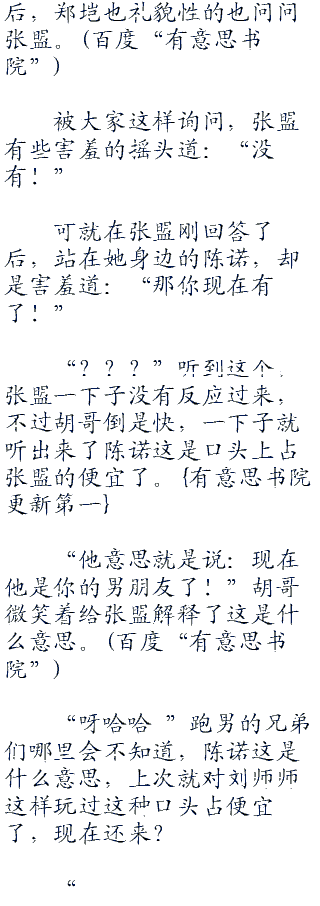 后，郑垲也礼貌性的也问问
张盟。(百度“有意思书
院”)
被大家这样询问，张盟
有些害羞的摇头道：“没
有！”
可就在张盟刚回答了
后，站在她身边的陈诺，却
是害羞道：“那你现在有
了！”
“？？？”听到这个，
张盟一下子没有反应过来，
不过胡哥倒是快，一下子就
听出来了陈诺这是口头上占
张盟的便宜了。{有意思书院
更新第一}
“他意思就是说：现在
他是你的男朋友了！”胡哥
微笑着给张盟解释了这是什
么意思。(百度“有意思书
院”)
“呀哈哈 ”跑男的兄弟
们哪里会不知道，陈诺这是
什么意思，上次就对刘师师
这样玩过这种口头占便宜
了，现在还来？
“